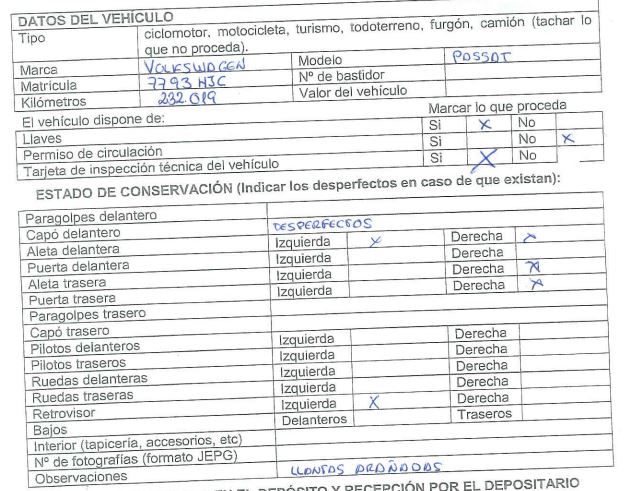 DATOS DEL VEHÍCULO
Tipo ciclomotor, motocicleta, turismo, todoterreno, furgón, camión (tachar lo
que no proceda).
Marca VOLKSWAGEN Modelo PASSAT
Matrícula 7793 HJC Nº de bastidor
Kilómetros 232.019 Valor del vehículo
El vehículo dispone de: Marcar lo que proceda
Llaves Si X No
Permiso de circulación Si No X
Tarjeta de inspección técnica del vehículo Si X No
ESTADO DE CONSERVACIÓN (Indicar los desperfectos en caso de que existan):
Paragolpes delantero
Capó delantero DESPERFECTOS
Aleta delantera Izquierda X Derecha X
Puerta delantera Izquierda Derecha
Aleta trasera Izquierda Derecha X
Puerta trasera Izquierda Derecha X
Paragolpes trasero
Capó trasero
Pilotos delanteros Izquierda Derecha
Pilotos traseros Izquierda Derecha
Ruedas delanteras Izquierda Derecha
Ruedas traseras Izquierda Derecha
Retrovisor Izquierda X Derecha
Bajos Delanteros Traseros
Interior (tapicería, accesorios, etc)
Nº de fotografías (formato JEPG)
Observaciones LLANTAS ARAÑADAS
EN EL DEPÓSITO Y RECEPCIÓN POR EL DEPOSITARIO